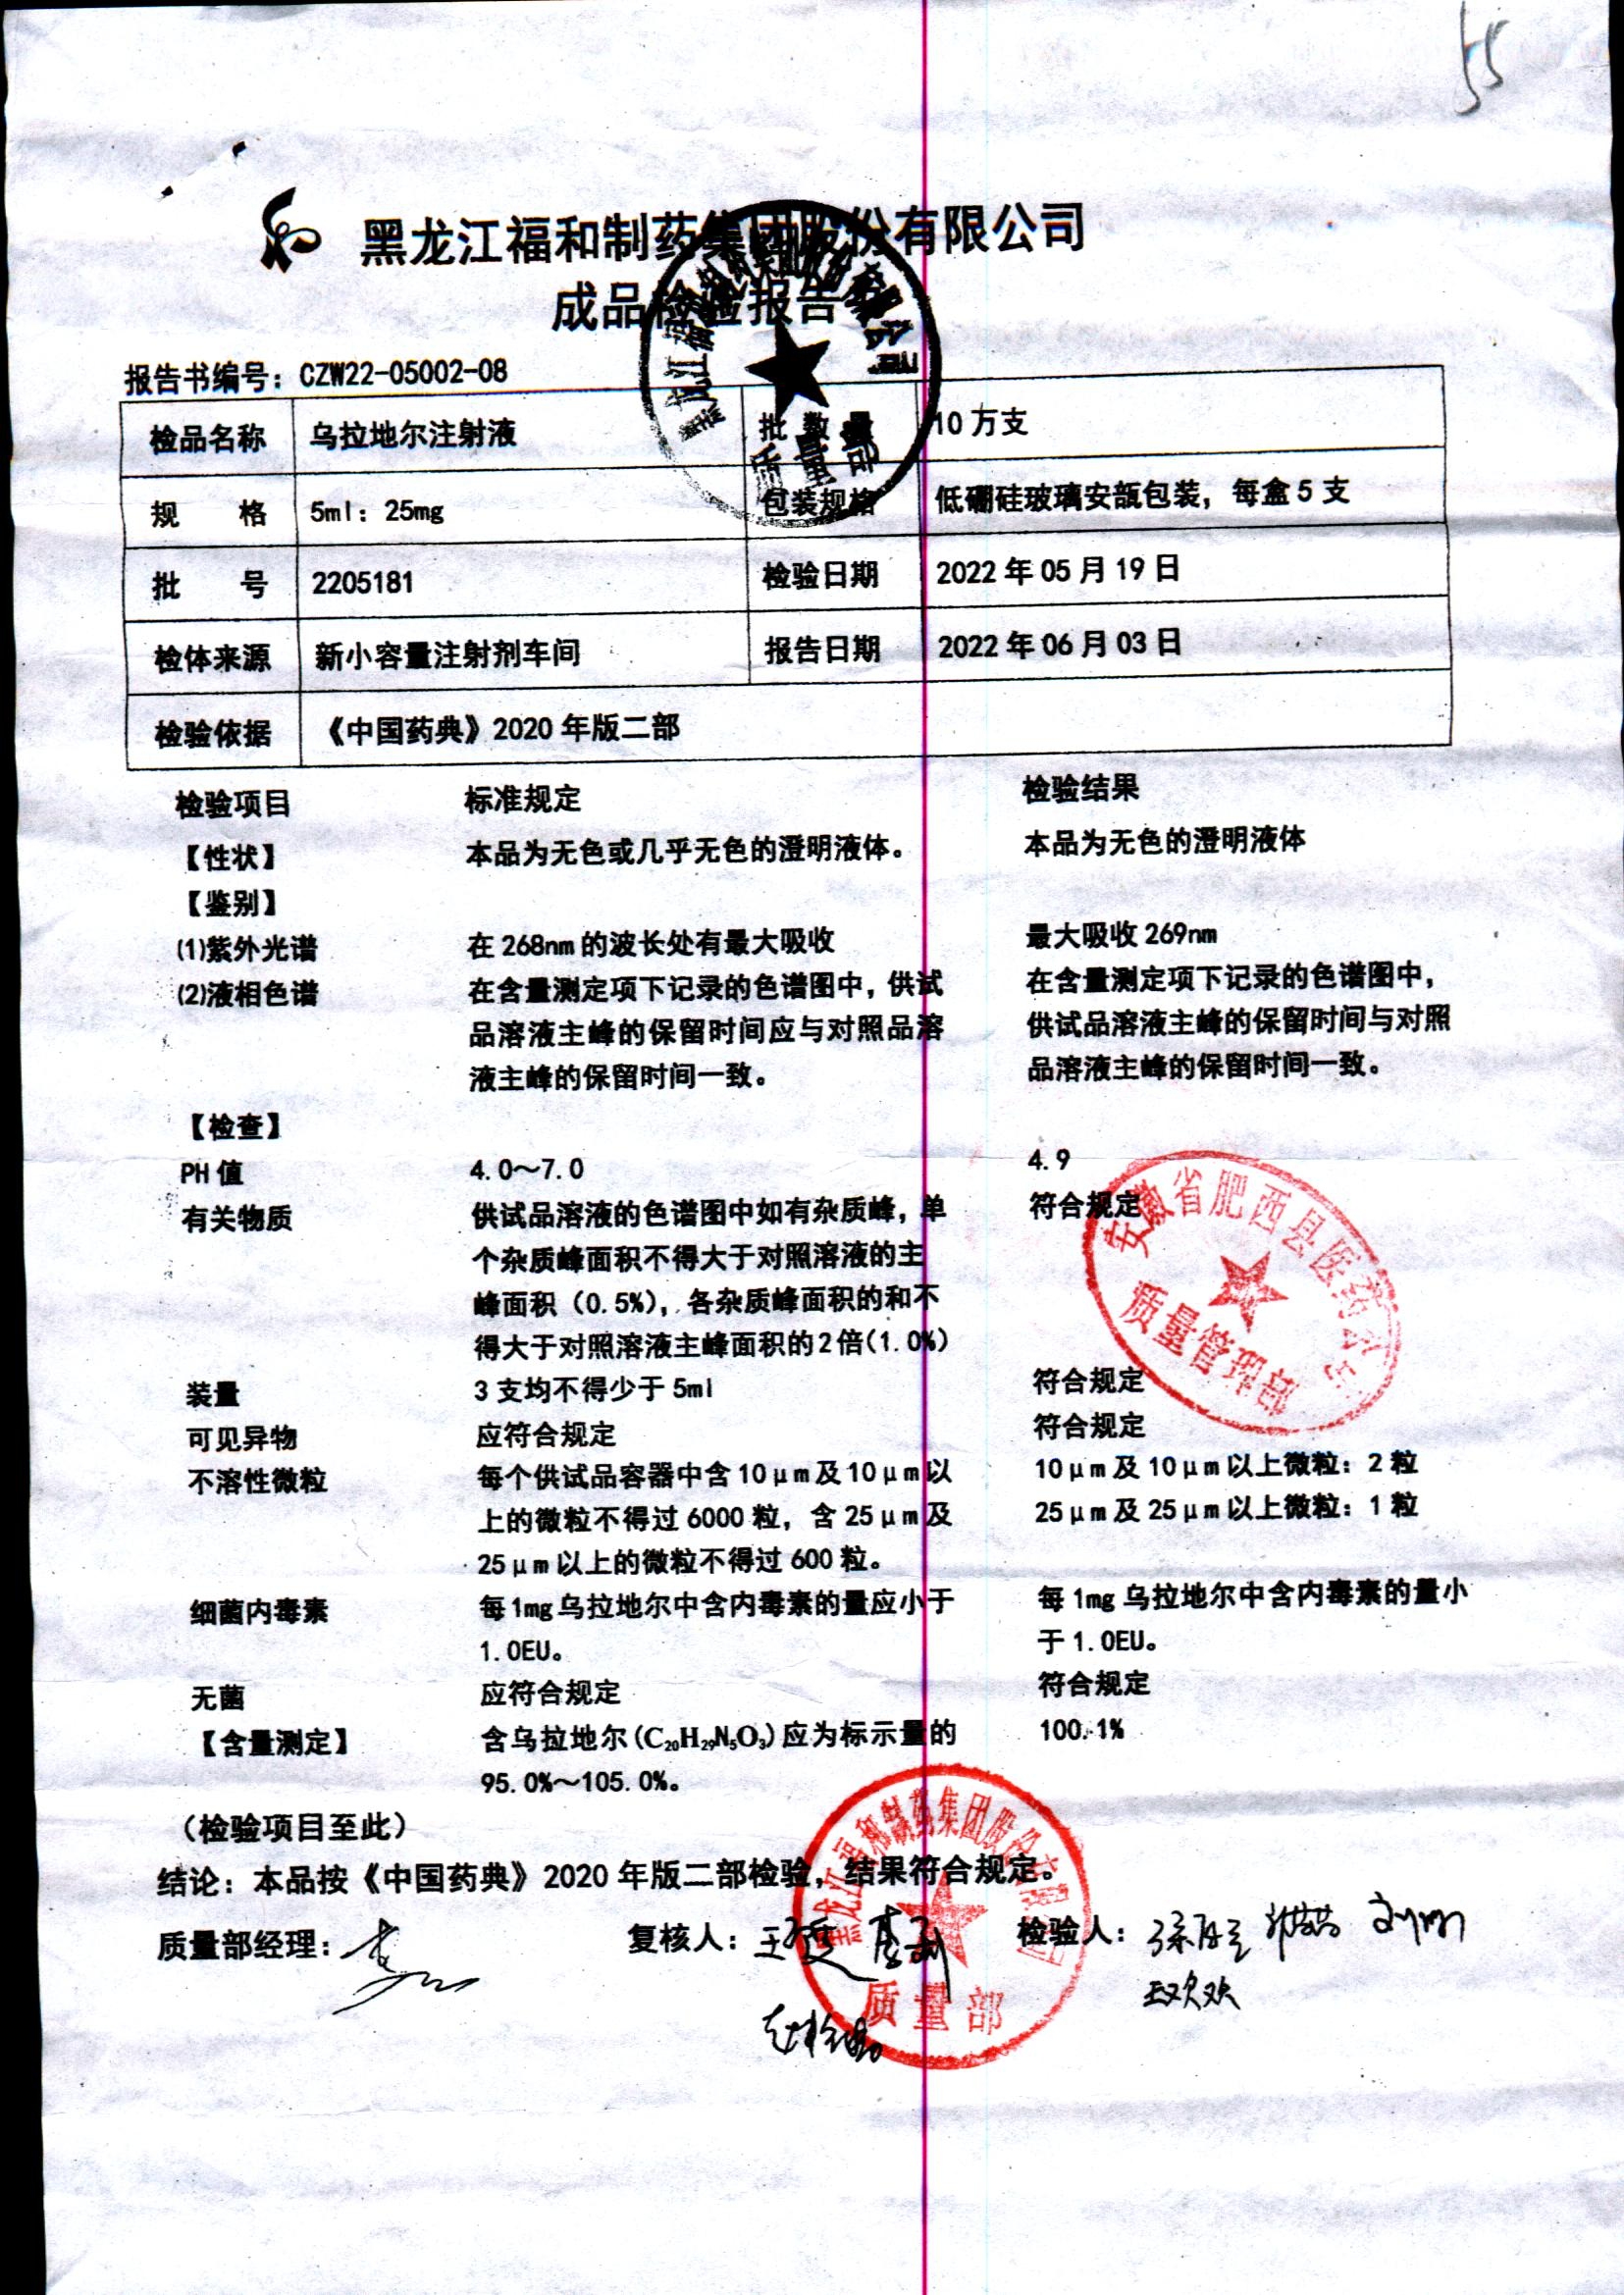 55
黑龙江福和制药集团股份有限公司
成品检验报告
报告书编号：CZW22-05002-08
检品名称 乌拉地尔注射液 批数量 10万支
规 格 5ml：25mg 包装规格 低硼硅玻璃安瓿包装，每盒5支
批 号 2205181 检验日期 2022年05月19日
检体来源 新小容量注射剂车间 报告日期 2022年06月03日
检验依据 《中国药典》2020年版二部
检验项目 标准规定 检验结果
【性状】 本品为无色或几乎无色的澄明液体。 本品为无色的澄明液体
【鉴别】
(1)紫外光谱 在268nm的波长处有最大吸收 最大吸收269nm
(2)液相色谱 在含量测定项下记录的色谱图中，供试 在含量测定项下记录的色谱图中，
品溶液主峰的保留时间应与对照品溶 供试品溶液主峰的保留时间与对照
液主峰的保留时间一致。 品溶液主峰的保留时间一致。
【检查】
PH值 4.0～7.0 4.9
有关物质 供试品溶液的色谱图中如有杂质峰，单 符合规定
个杂质峰面积不得大于对照溶液的主
峰面积（0.5%），各杂质峰面积的和不
得大于对照溶液主峰面积的2倍(1.0%)
装量 3支均不得少于5ml 符合规定
可见异物 应符合规定 符合规定
不溶性微粒 每个供试品容器中含10μm及10μm以 10μm及10μm以上微粒：2粒
上的微粒不得过6000粒，含25μm及 25μm及25μm以上微粒：1粒
25μm以上的微粒不得过600粒。
细菌内毒素 每1mg乌拉地尔中含内毒素的量应小于 每1mg乌拉地尔中含内毒素的量小
1.0EU。 于1.0EU。
无菌 应符合规定 符合规定
【含量测定】 含乌拉地尔(C₂₀H₂₉N₅O₃)应为标示量的 100.1%
95.0%～105.0%。
（检验项目至此）
结论：本品按《中国药典》2020年版二部检验，结果符合规定。
质量部经理： 复核人： 检验人：
王欢欢
黑龙江福和制药集团股份有限公司
质量部
安徽省肥西县医药公司
质量管理部
黑龙江福和制药集团股份有限公司
质量部